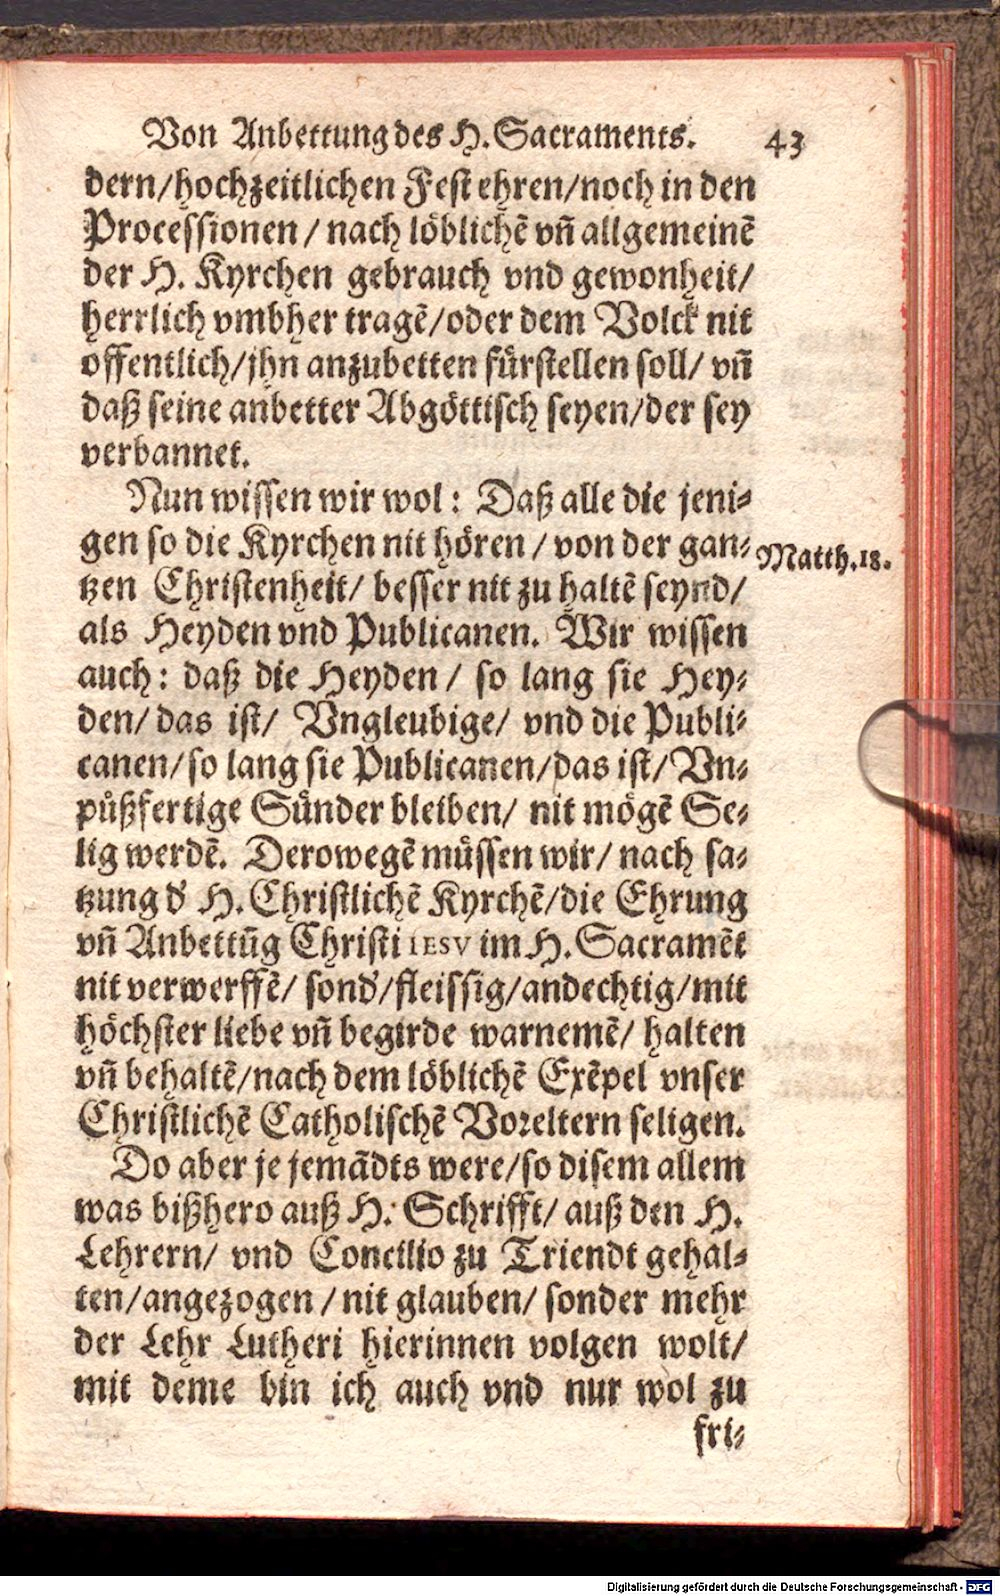 Von Anbettung des H. Sacraments. 43
dern/hochzeitlichen Fest ehren/noch in den
Processionen / nach löblichẽ vñ allgemeinẽ
der H. Kyrchen gebrauch vnd gewonheit/
herrlich vmbher tragẽ/oder dem Volck nit
offentlich/jhn anzubetten fürstellen soll/ vñ
daß seine anbetter Abgöttisch seyen/der sey
verbannet.
Nun wissen wir wol: Daß alle die jeni-
gen so die Kyrchen nit hören / von der gan-
Matth.18.
tzen Christenheit/ besser nit zu haltẽ seynd/
als Heyden vnd Publicanen. Wir wissen
auch: daß die Heyden / so lang sie Hey-
den/ das ist/ Vngleubige/ vnd die Publi-
canen/so lang sie Publicanen/das ist/ Vn-
půßfertige Sünder bleiben/ nit mögẽ Se-
lig werdẽ. Derowegẽ müssen wir/ nach sa-
tzung d' H. Christlichẽ Kyrchẽ/die Ehrung
vñ Anbettũg Christi IESV im H. Sacramẽt
nit verwerffẽ/ sond'/fleissig/andechtig/mit
höchster liebe vñ begirde warnemẽ/ halten
vñ behaltẽ/nach dem löblichẽ Exẽpel vnser
Christlichẽ Catholischẽ Voreltern seligen.
Do aber je jemãdts were/so disem allem
was bißhero auß H. Schrifft/ auß den H.
Lehrern/ vnd Concilio zu Triendt gehal-
ten/angezogen / nit glauben/ sonder mehr
der Lehr Lutheri hierinnen volgen wolt/
mit deme bin ich auch vnd nur wol zu
fri-
Digitalisierung gefördert durch die Deutsche Forschungsgemeinschaft - DFG